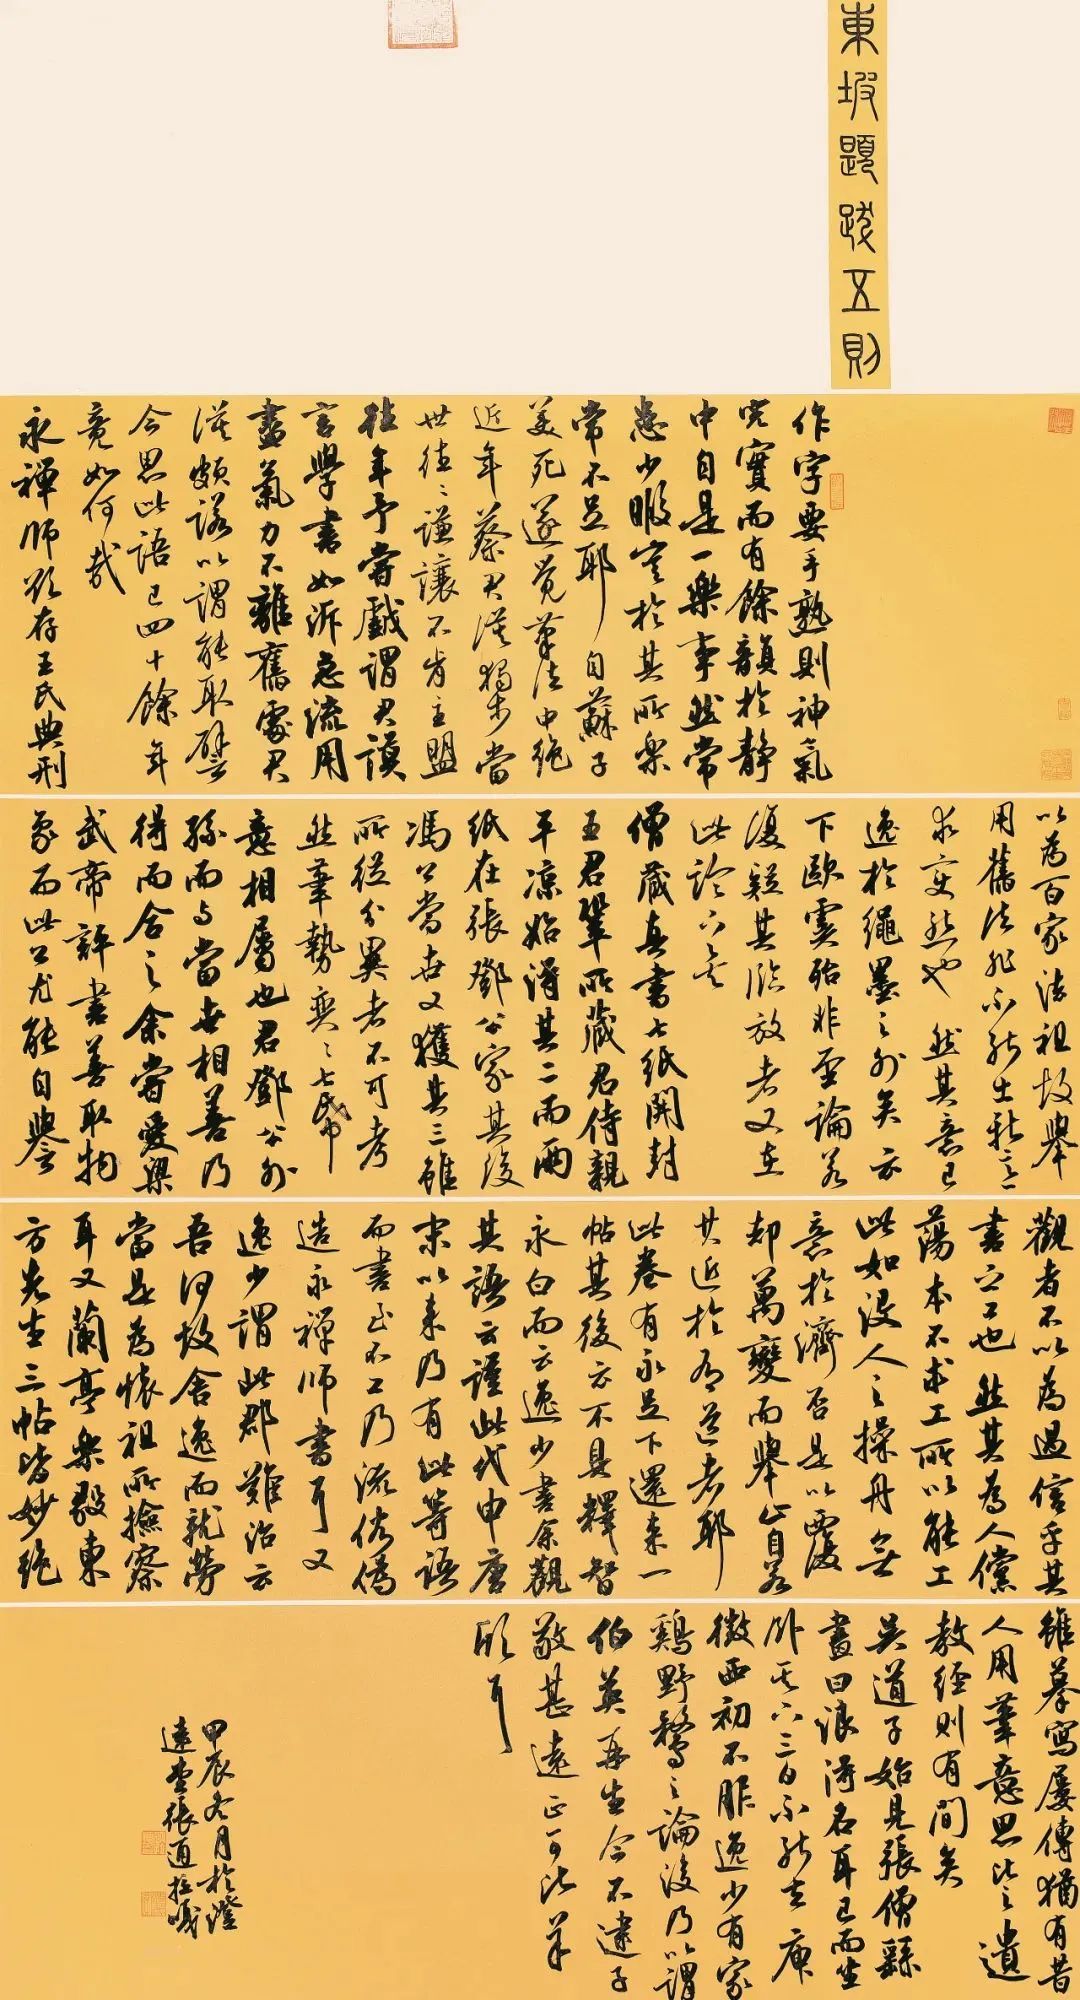 東坡題跋五則
作字要手熟則神氣
完實而有餘韻於靜
中自是一樂事然常
患少暇豈於其所樂
常不足耶自蘇子
美死遂覺筆法中絕
近年蔡君謨獨步當
世往往謙讓不肯主盟
往年予嘗戲謂君謨
言學書如泝急流用
盡氣力不離舊處君
謨頗諾以謂能取譬
今思此語已四十餘年
竟如何哉
永禪師欲存王氏典刑
以為百家法祖故舉
用舊法非不能出新意
求變態也然其意已
逸於繩墨之外矣云
下歐虞殆非至論若
復疑其臨放者又在
此論下矣
僧藏真書七紙開封
王君鞏所藏君侍親
平涼始得其二而兩
紙在張鄧公家其後
馮公當世又獲其三雖
所從分異者不可考
然筆勢奕奕七紙
意相屬也君鄧公外
孫而與當世相善乃
得而合之余嘗愛梁
武帝評書善取物
象而此公尤能自譽
觀者不以為過信乎其
書之工也然其為人儻
蕩本不求工所以能工
此如沒人之操舟無
意於濟否是以覆
却萬變而舉止自若
其近於有道者耶
此卷有永足下還來一
帖其後云不具釋智
永白而云逸少書余觀
其語云謹此代申唐
末以來乃有此等語
而書至不工乃流俗偽
造永禪師書耳又
逸少謂此郡難治云
吾何故舍逸而就勞
當是為懷祖所撿察
耳又蘭亭樂毅東
方先生三帖皆妙絕
雖摹寫屢傳猶有昔
人用筆意思比之遺
教經則有間矣
吳道子始見張僧繇
畫曰浪得名耳已而坐
臥其下三日不能去庾
徵西初不服逸少有家
鷄野鶩之論後乃以謂
伯英再生今不逮子
敬甚遠正可比羊
欣耳
甲辰冬月於澄
遠堂張通